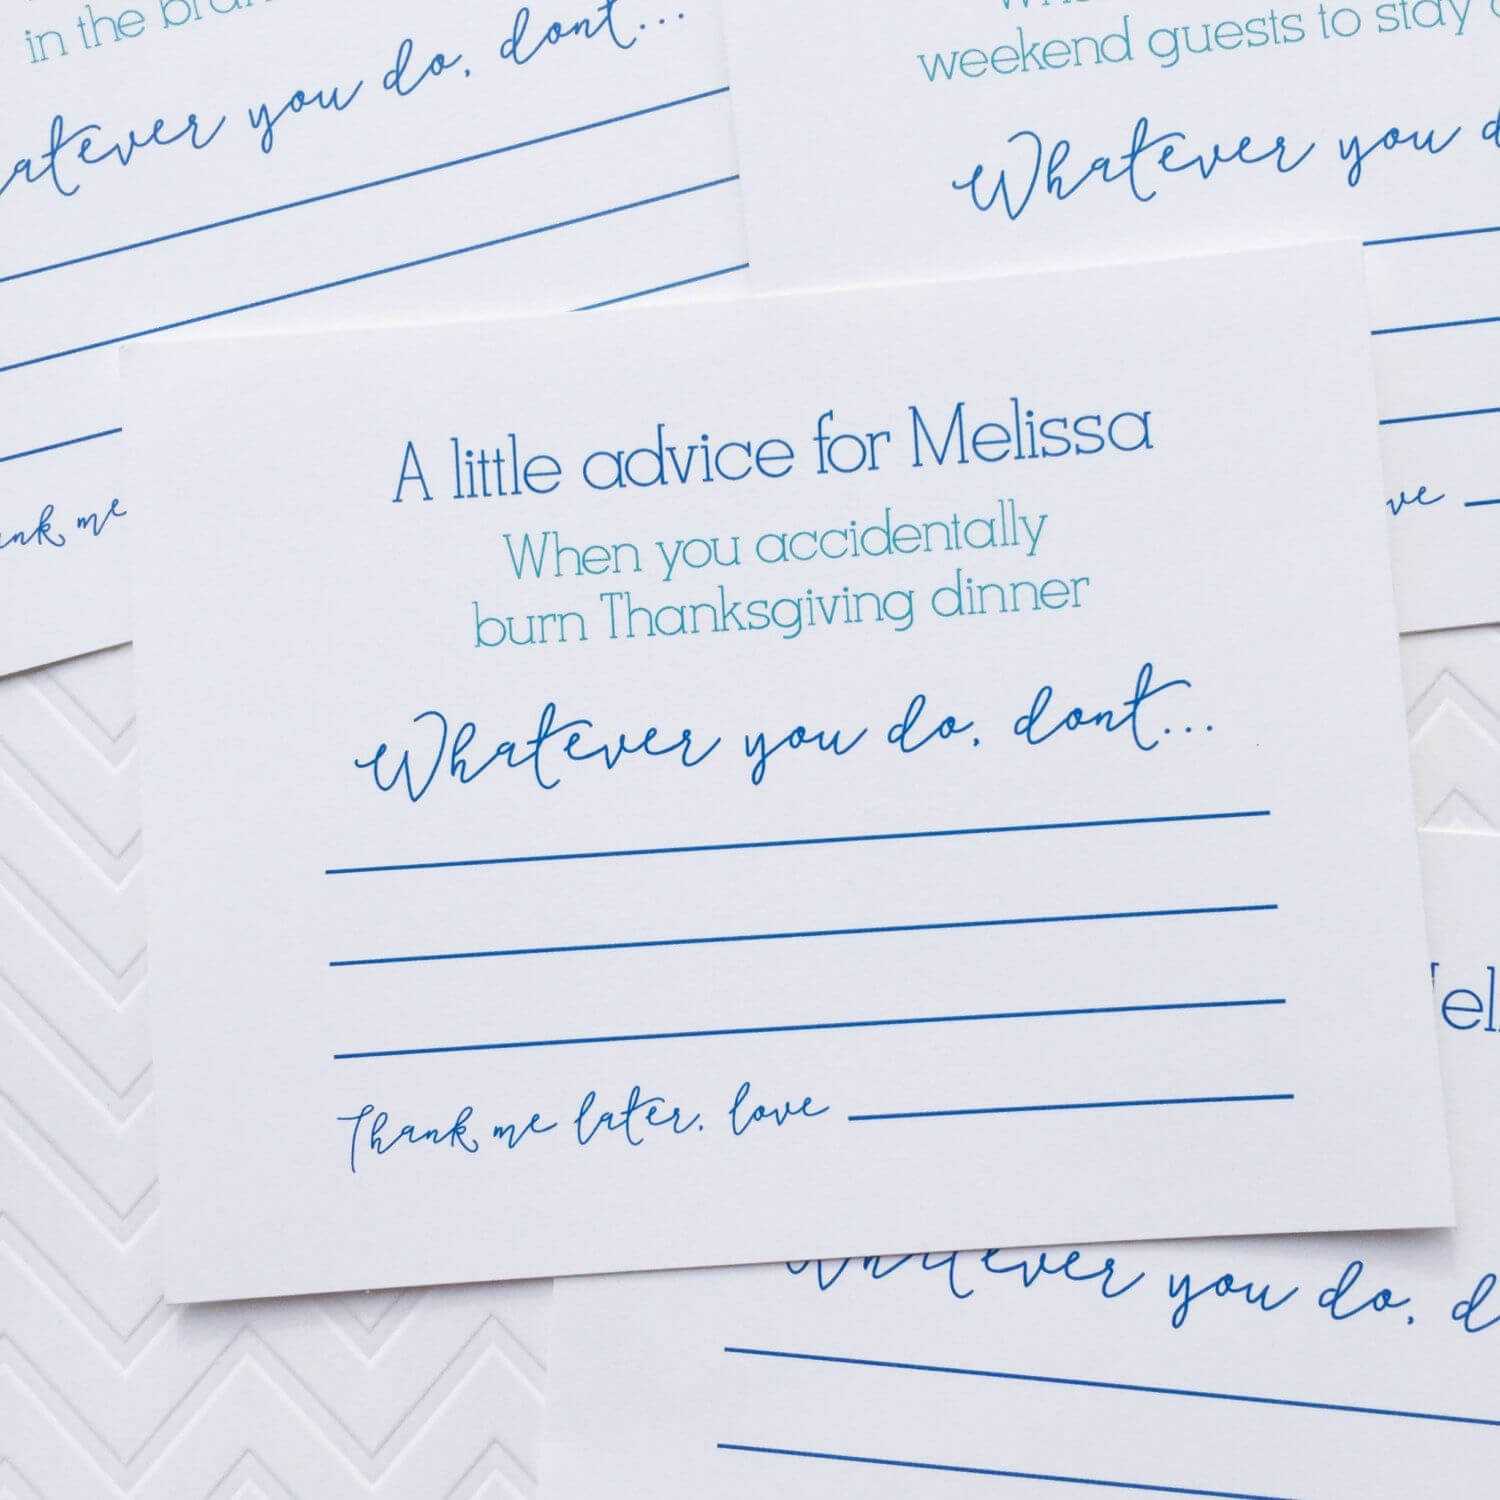 in the
whatever you do, dont...
weekend guests to stay
Whatever you
A little advice for Melissa
When you accidentally
burn Thanksgiving dinner
Whatever you do, dont...
Thank me later, love
me
Whatever you do,